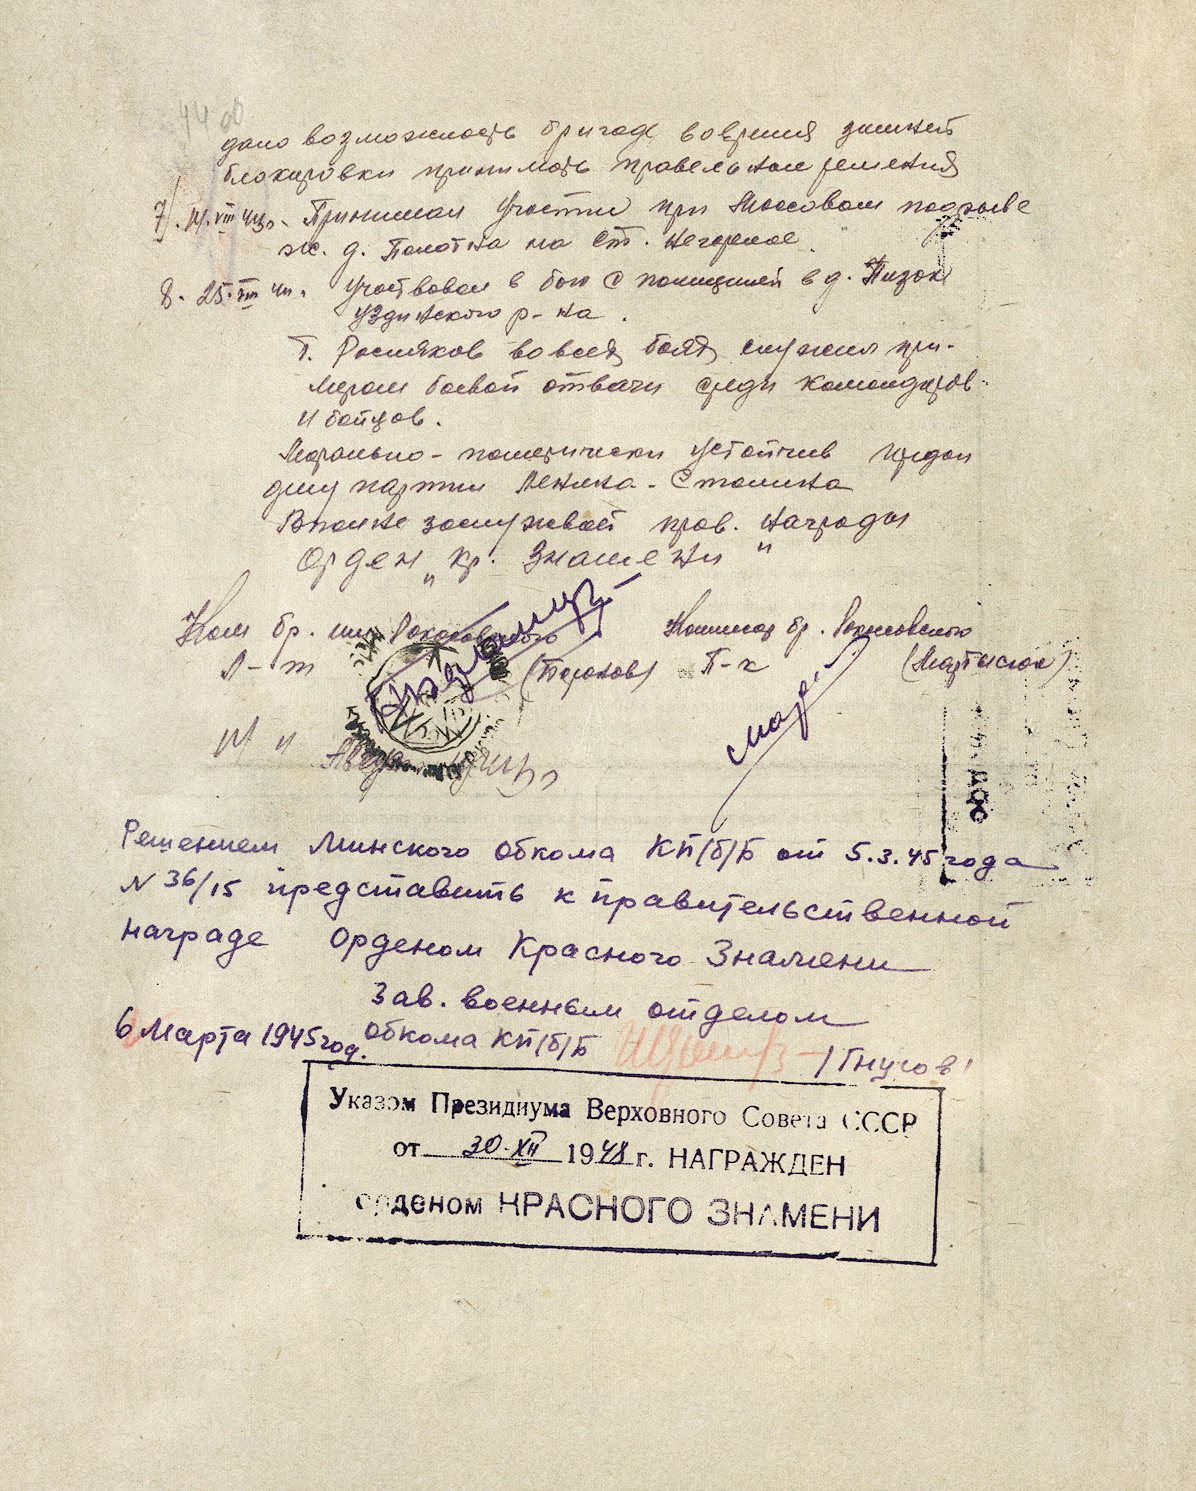 дало возможность бригаде вовремя зимней
блокировки принимать правельные решения
7/. VIII 44г. Принимал участии при массовом подрыве
ж. д. Полотна на ст. Негорелое.
8. 25. VIII 44. Участвовал в бою с полицией в д.
Узденского р-на.
Т. Росляков во всех боях служил при-
мером боевой отваги среди командиров
и бойцов.
Морально-политически устойчив предан
делу партии Ленина-Сталина
Вполне заслуживает прав. Награды
Орден „Кр. Знамени"
Ком бр. им Рокосовского Комисар бр. Рокосовского
Л-т П-к
Решением Минского обкома КП(б)Б от 5.3.45 года
N 36/15 представить к правительственной
награде Орденом Красного Знамени
Зав. военным отделом
6 Марта 1945 год. обкома КП(б)Б /Гнусов/
Указом Президиума Верховного Совета СССР
от 30.XII 1948 г. НАГРАЖДЕН
орденом КРАСНОГО ЗНАМЕНИ